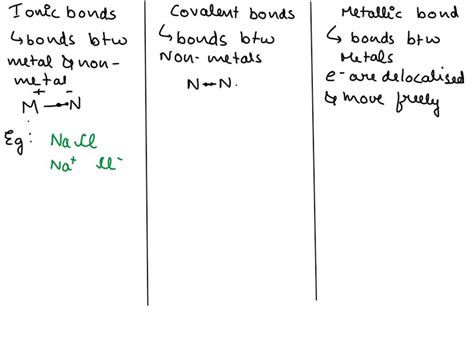 Ionic bonds
↳bonds btw
metal & non-
metal
+ -
M — N
Eg: NaCl
Na⁺ Cl⁻
Covalent bonds
↳bonds btw
Non-metals
N—N.
Metallic bond
↳ bonds btw
Metals
e⁻ are delocalised
& move freely